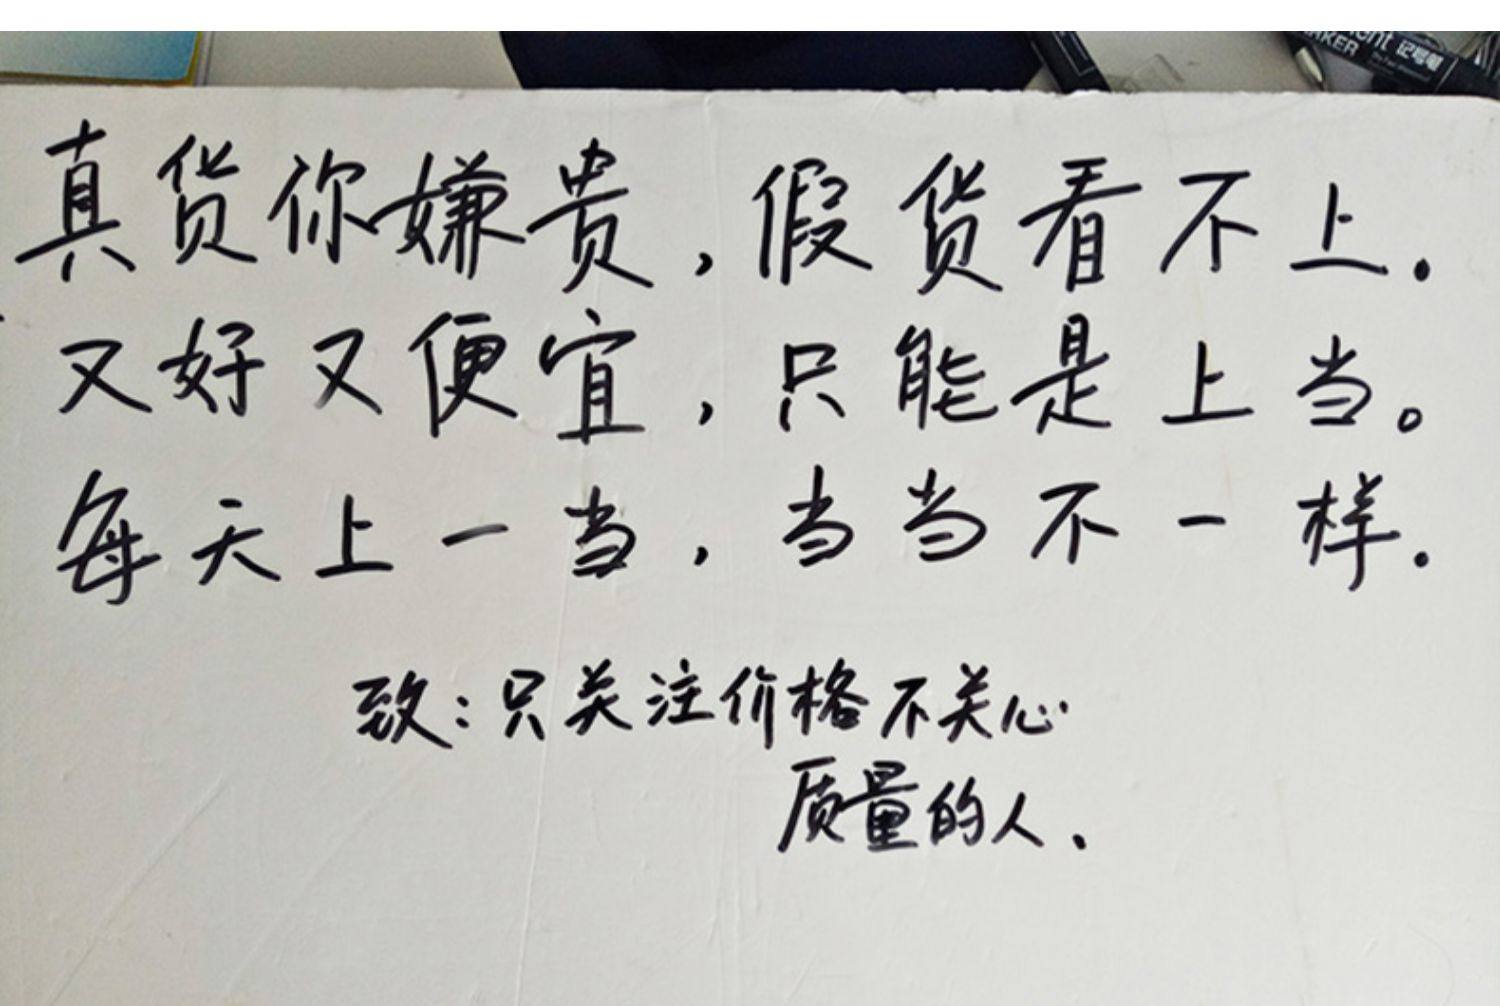 ent 记号笔
RKER
真货你嫌贵，假货看不上.
又好又便宜，只能是上当。
每天上一当，当当不一样.
致：只关注价格不关心
质量的人.